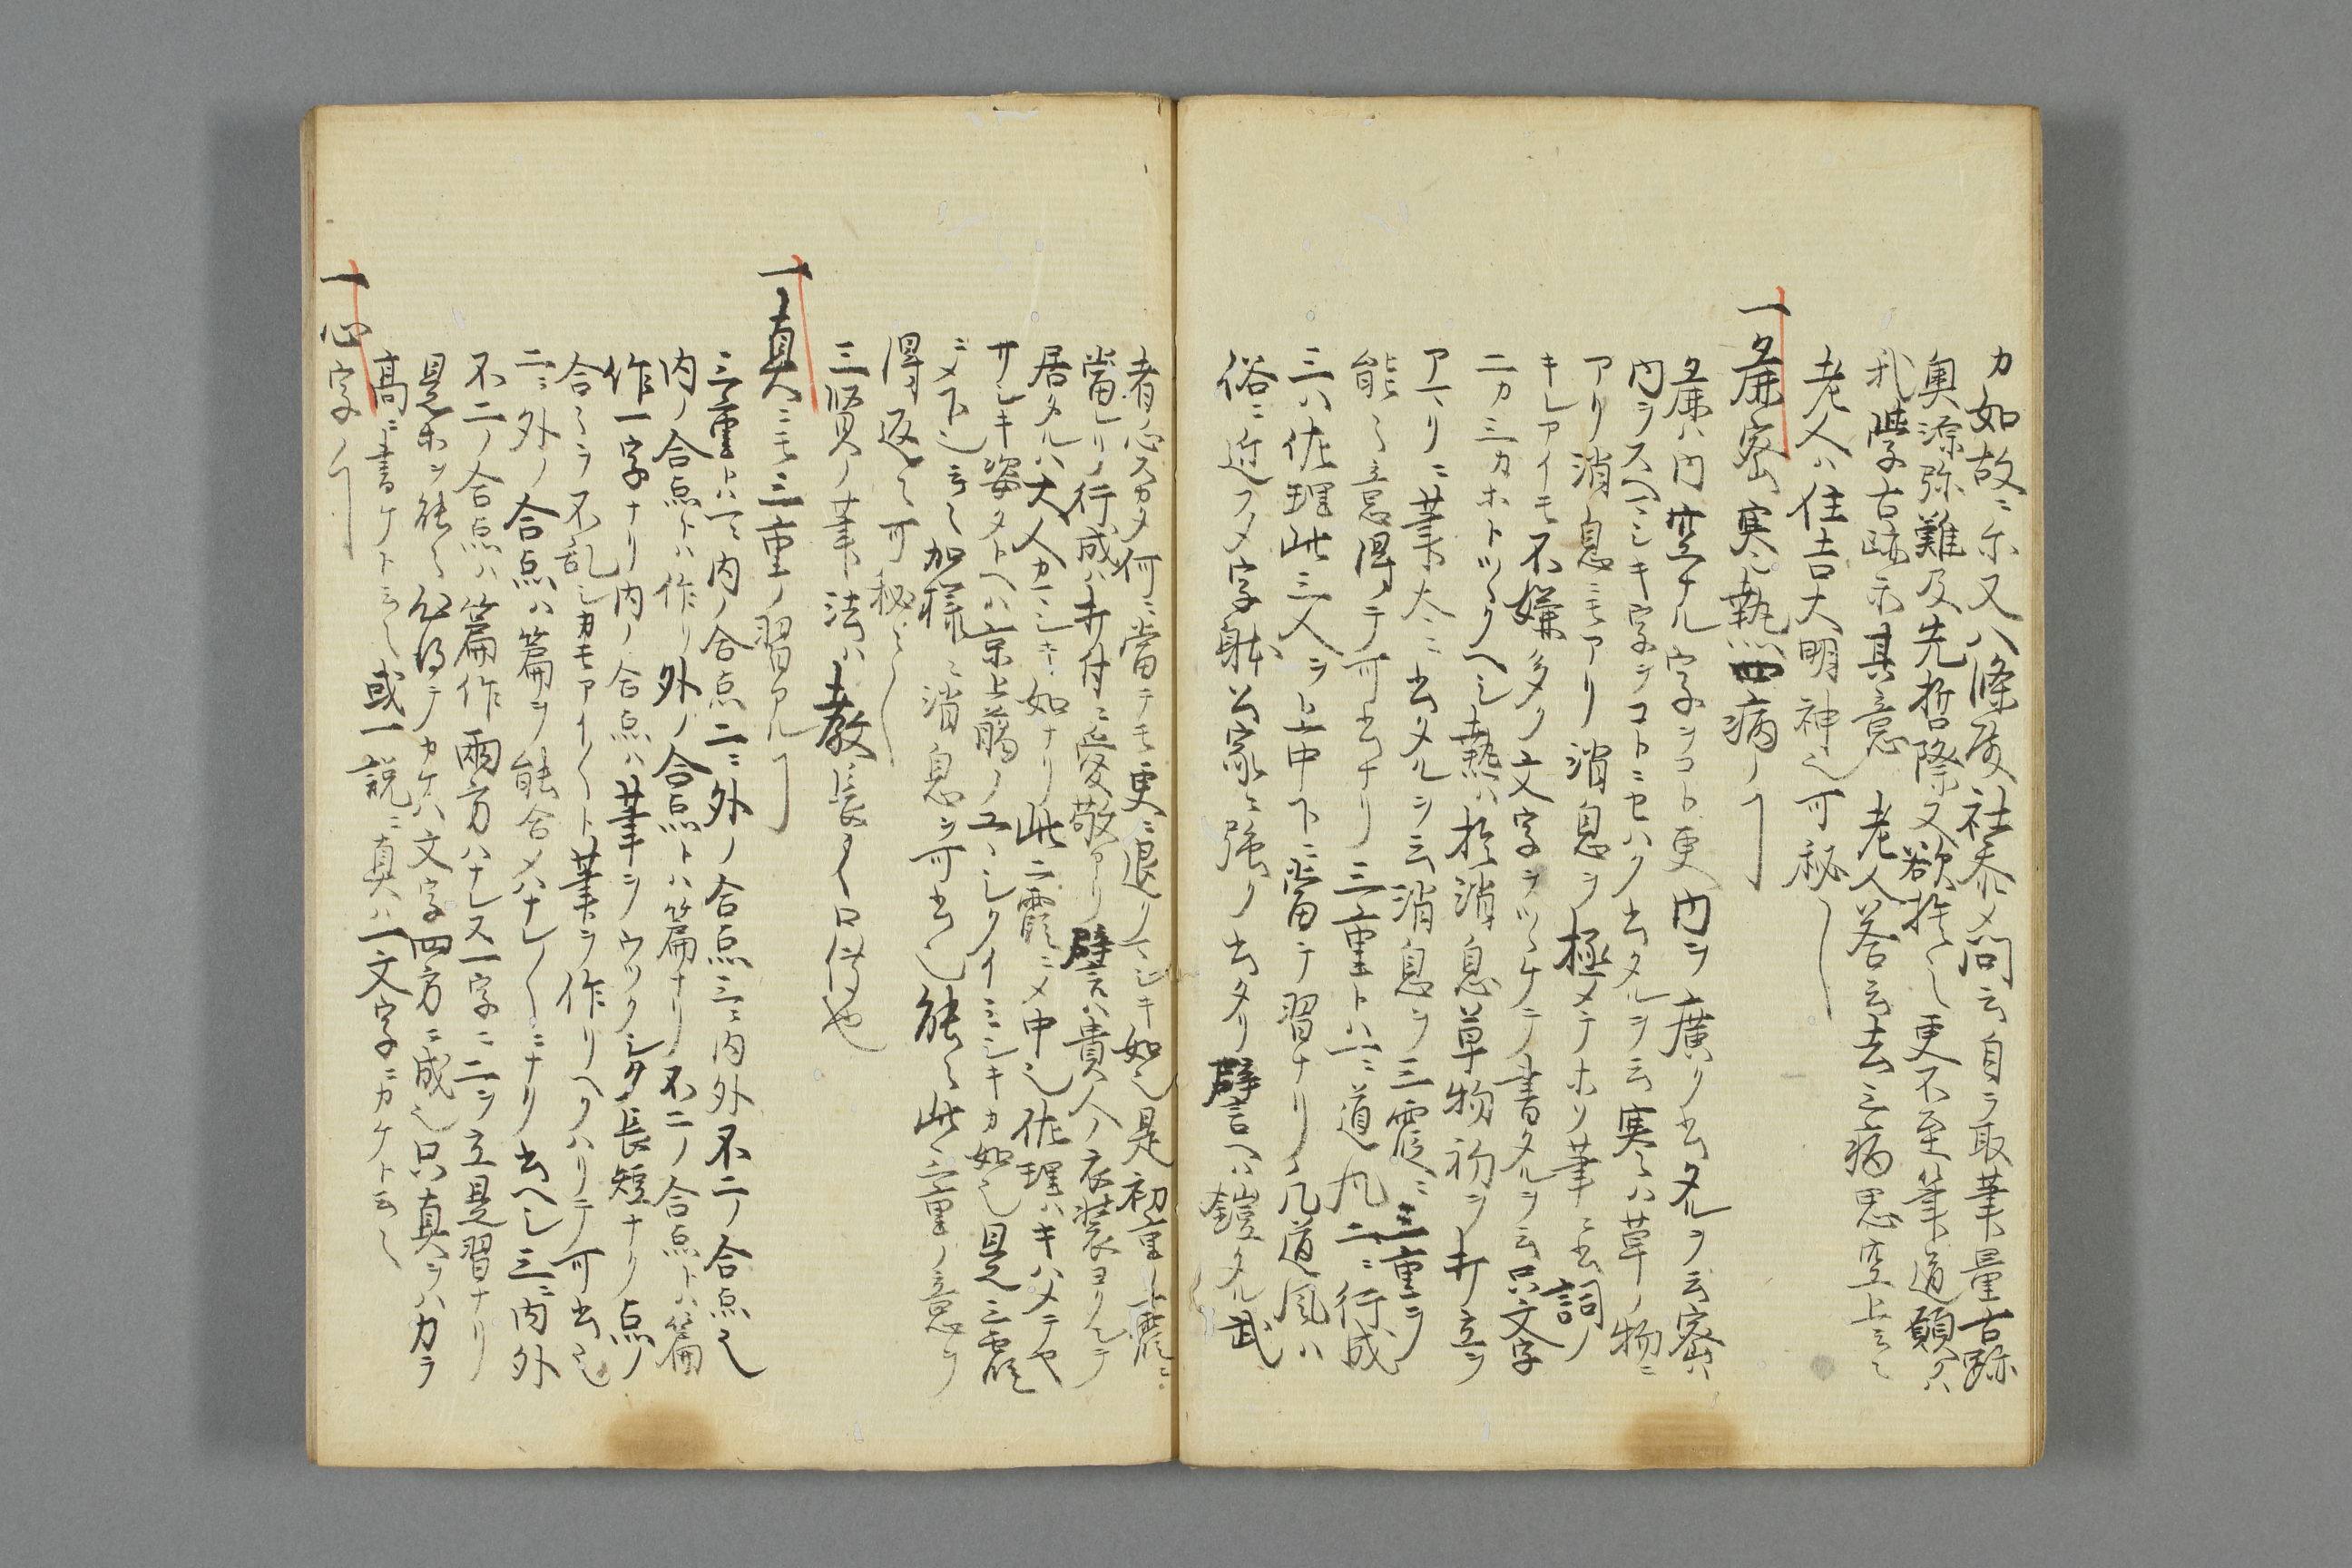 カ如故ニ尓又八條廣社参メ問云自ラ取筆量古跡
奥源弥難及先哲際又欲捨之更不至筆道願クハ
我學古跡示其意 老人答云去三病思空上云々
老人ハ住吉大明神也可秘々
一 夕庸密寒熱四病ノ㕝
夕庸ハ内空ナル字ヲコト更内ヲ廣ク書タルヲ云密ハ
内ヲスヘシキ字ヲコトニセハク書タルヲ云寒ハ草ノ物ニ
アリ消息ニモアリ消息ヲ極メテホソ筆ニ書詞ノ
キレアイモ不嫌多ク文字ヲツヽケテ書タルヲ云只文字
二カ三カホトツヽクヘシ熱ハ於消息草物初ヲ打立ヲ
アマリニ筆太ニ書タルヲ云消息ヲ三霞ニ三重ヲ
能々意得テ可書ナリ三重トハ一ニ道凡二ニ行成
三ハ佐理此三人ヲ上中下ニ當テ習ナリ凡道風ハ
俗ニ近フメ字躰公家ニ強ク書タリ譬ヘハ鎧タル武
者ノ心スカタ何ニ當テモ更ニ退クマシキ如也是初重上霞ニ
當レリ行成ハ打付ニ愛敬アリ譬ハ貴人ノ衣装ヨクメテ
居タルハ大人カマシキ如ナリ此二霞ニメ中也佐理ハキハメテヤ
サシキ姿タトヘハ京上臈ノユヽシクイミシキカ如也見三霞
ニメ下也云々加様ニ消息ヲ可書也能々此三重ノ意ヲ
得返々可秘々々
三賢ノ筆法ハ教長ノ口傳也
一 真ニモ三重ノ習アル㕝
三重トハ一ニ内ノ合点二ニ外ノ合点三ニ内外不二ノ合点也
内ノ合点トハ作リ外ノ合点トハ篇ナリ不二ノ合点トハ篇
作一字ナリ内ノ合点ハ筆ヲウツクシク長短ナリ点ノ
合々ヲ不乱シカモアイ〱ト筆ヲ作リヘクハリテ可書也
二ニ外ノ合点ハ篇ヲ能合メハナレ〱ニナリ書ヘシ三ニ内外
不二ノ合点ハ篇作兩方ハナレス一字ニ二ヲ立見習ナリ
見ホヲ能々心得テカケハ文字四方ニ成也只真ヲハカラ
高ニ書ケト云々或一説ニ真ハ一文字ニカケト云々
一 心字ノ㕝